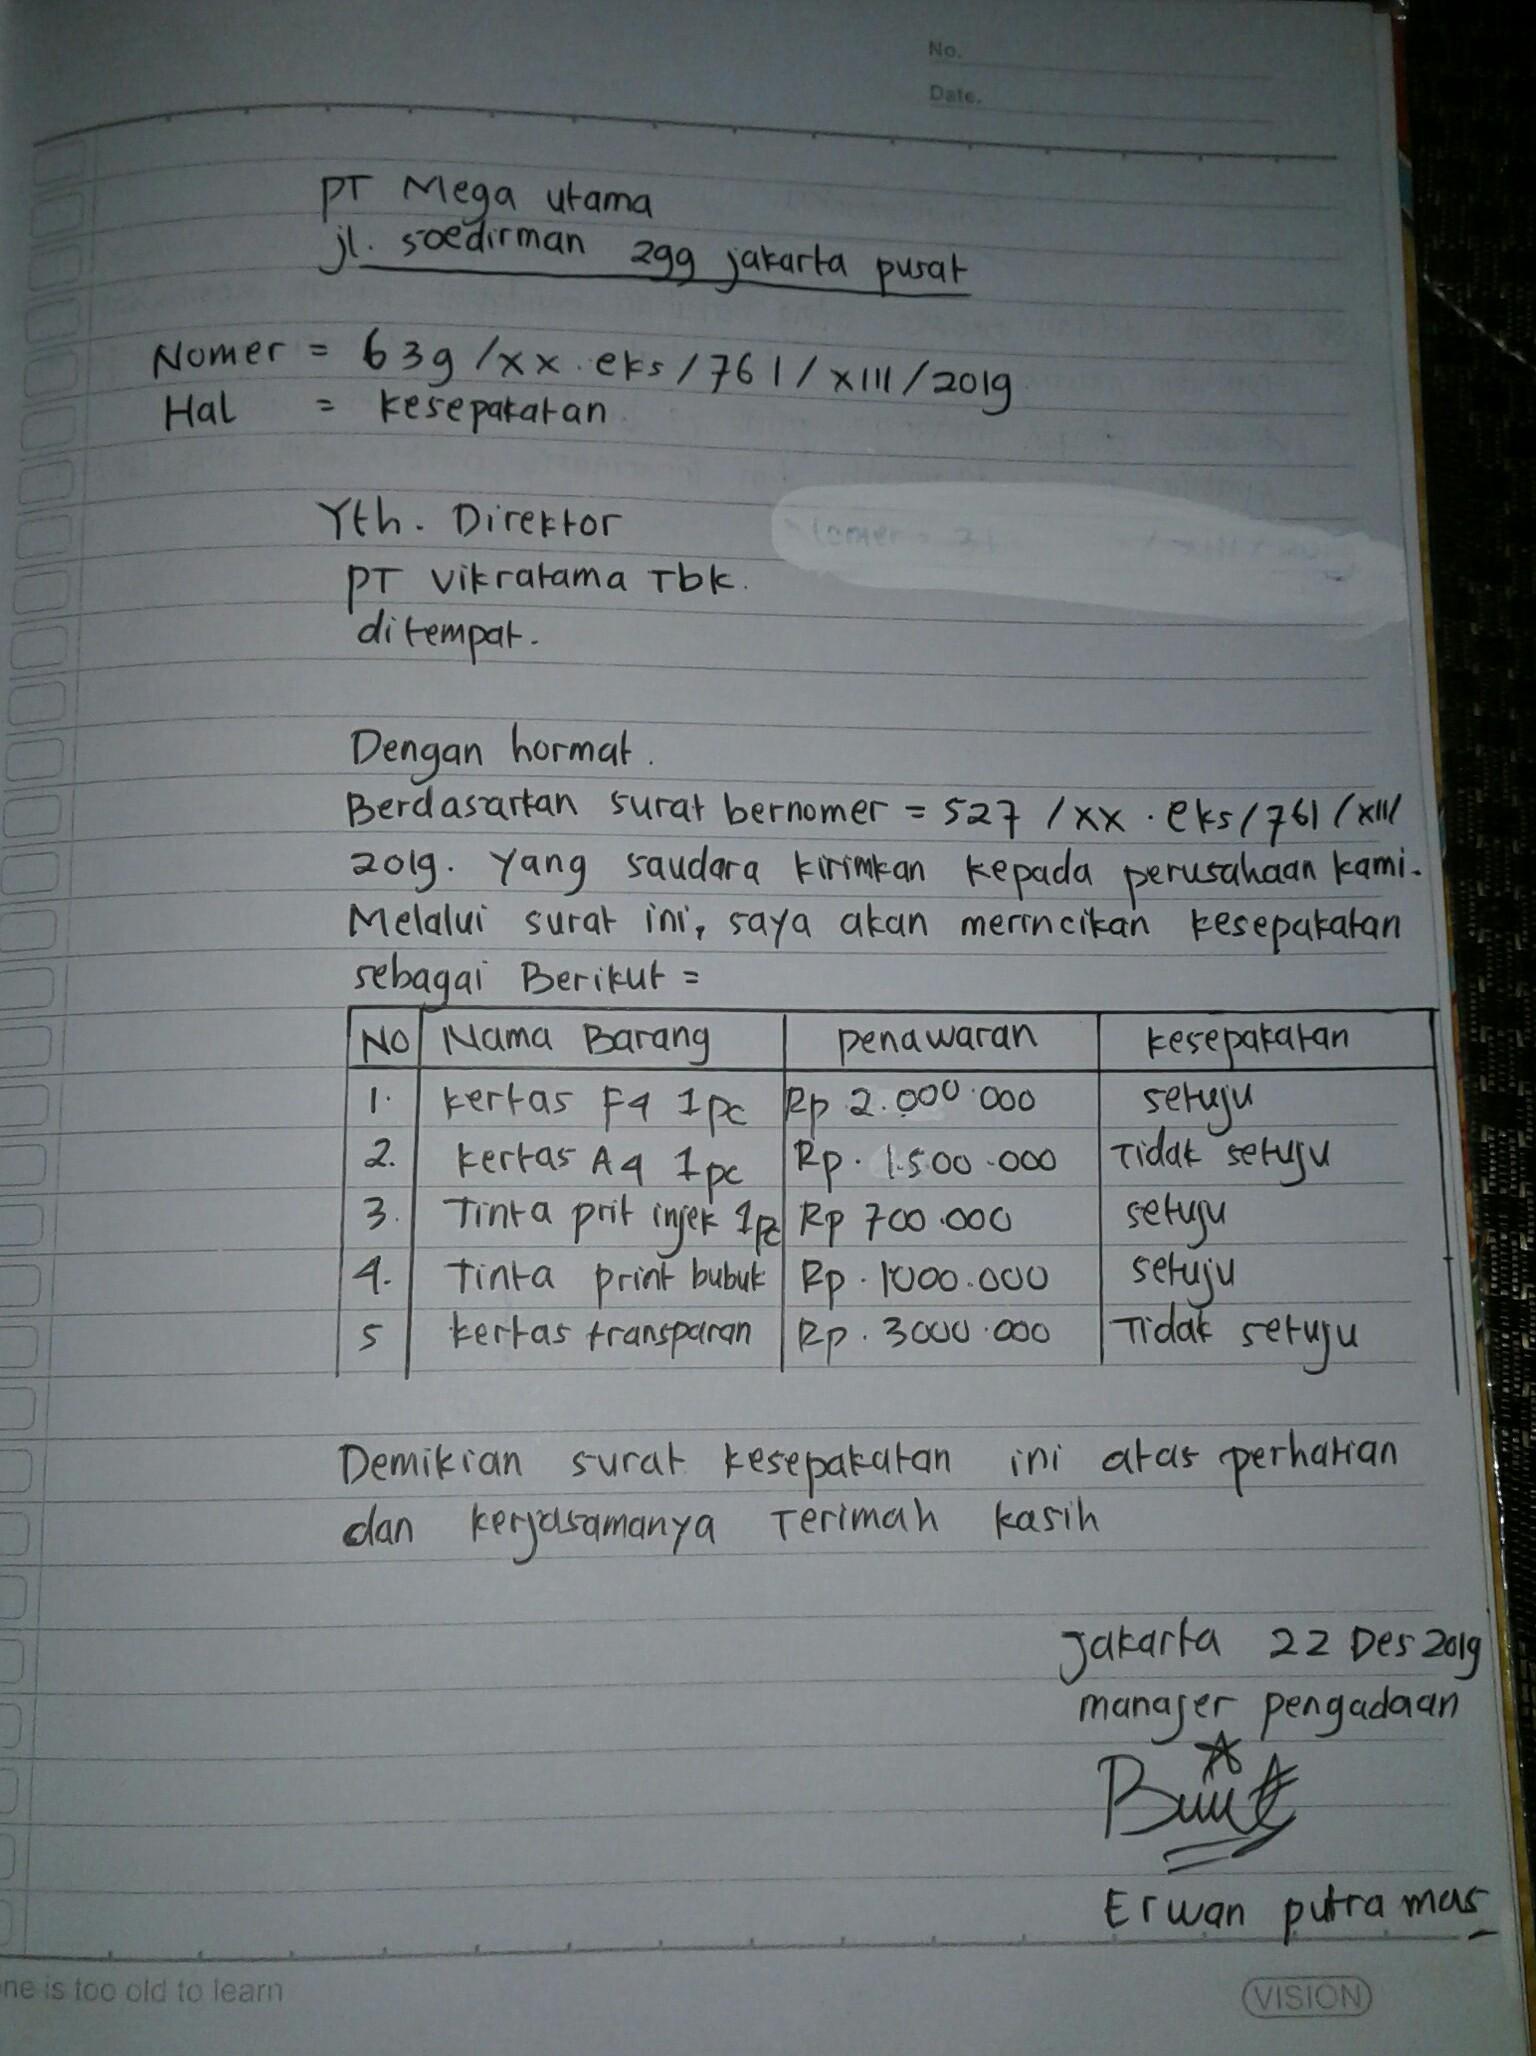 No.
Date.
PT Mega utama
jl. soedirman 299 jakarta pusat
Nomer = 639/xx.eks/761/XIII/2019
Hal = kesepakatan
Yth. Direktor
PT vikratama Tbk.
ditempat.
Dengan hormat.
Berdasarkan surat bernomer = 527/xx.eks/761/XIII/
2019. Yang saudara kirimkan kepada perusahaan kami.
Melalui surat ini, saya akan merincikan kesepakatan
sebagai Berikut =
NO Nama Barang penawaran kesepakatan
1. kertas F4 1pc Rp 2.000.000 setuju
2. kertas A4 1pc Rp. 1.500.000 Tidak setuju
3. Tinta prit injek 1pc Rp 700.000 setuju
4. Tinta print bubuk Rp. 1000.000 setuju
5 kertas transparan Rp. 3000.000 Tidak setuju
Demikian surat kesepakatan ini atas perhatian
dan kerjasamanya Terimah kasih
jakarta 22 Des 2019
manajer pengadaan
Erwan putra mas
ne is too old to learn
VISION